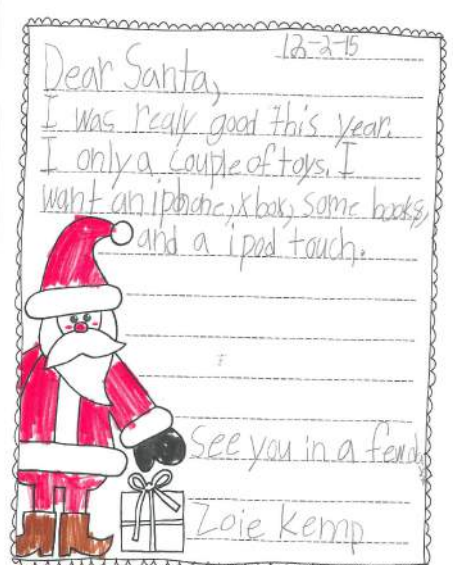 12-2-15
Dear Santa,
I was realy good this year.
I only a couple of toys. I
want an iphone, xbox, some books,
and a ipod touch.
See you in a few
Zoie Kemp